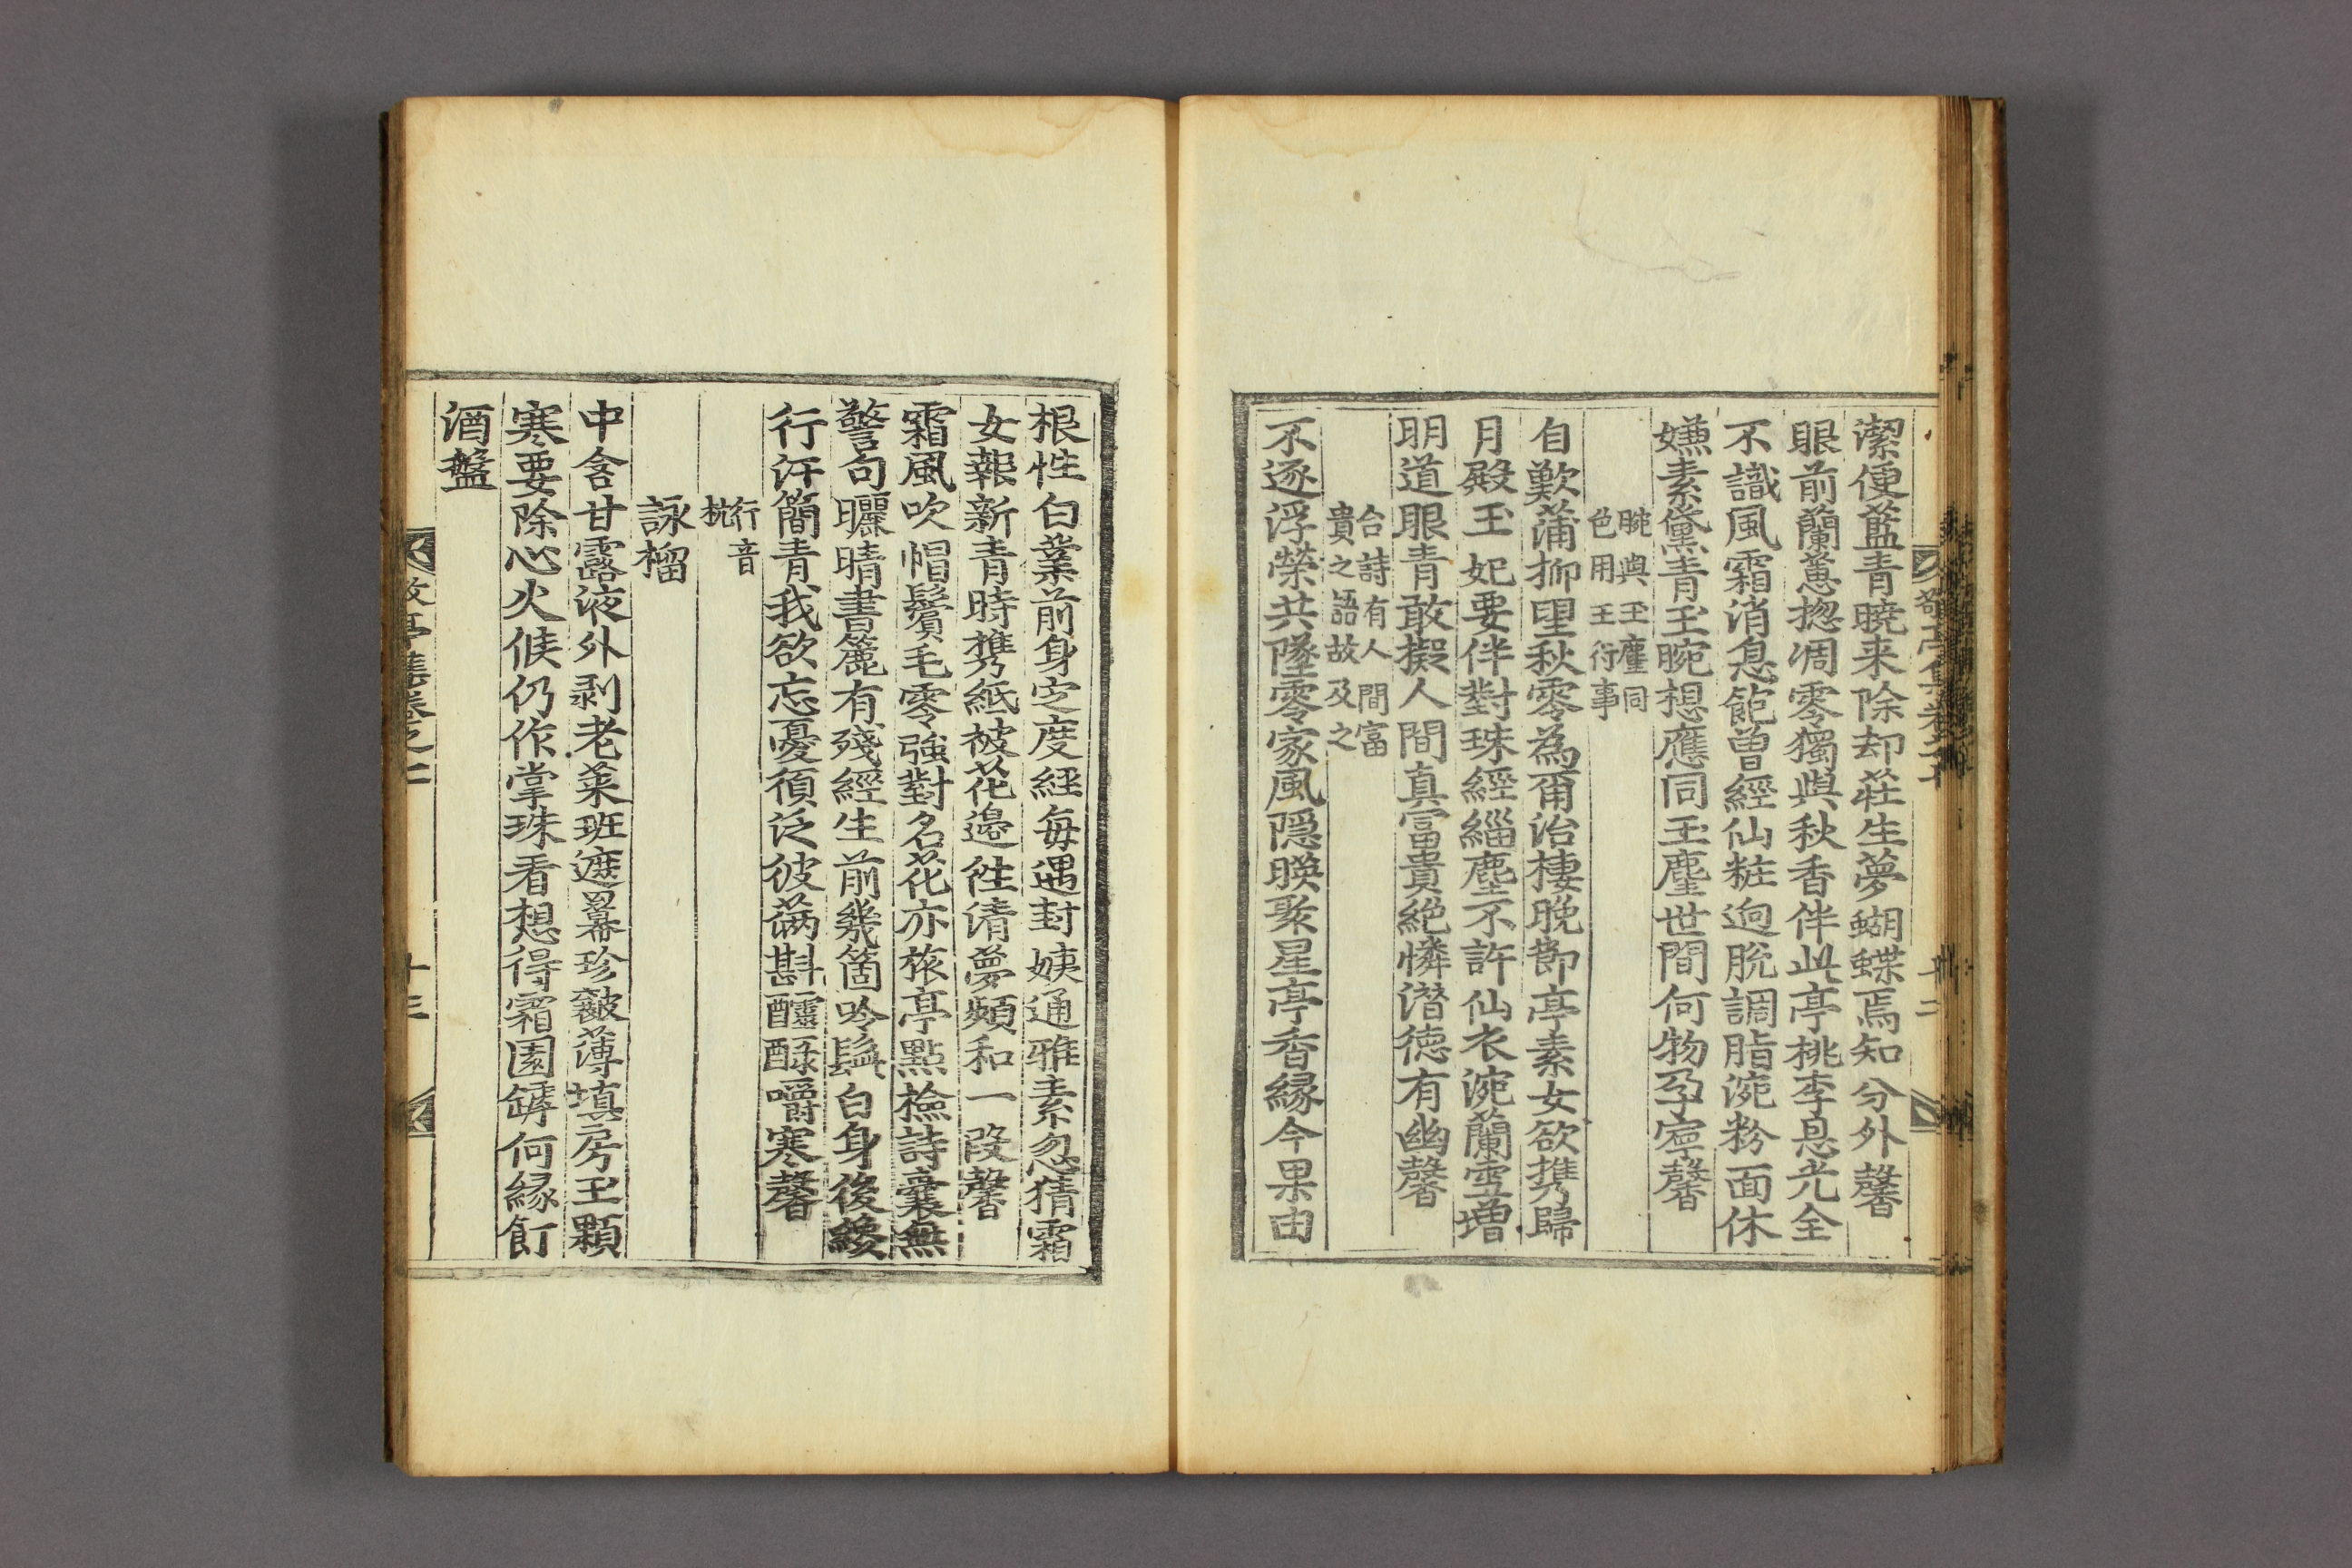 潔便藍青曉来除却莊生夢蝴蝶焉知分外馨
眼前蘭蕙揔凋零獨與秋香伴此亭桃李恩光全
不識風霜消息飽曾經仙粧逈脫調脂涴粉面休
嫌素黛青玉腕想應同玉塵世間何物孕寧馨
腕與玉塵同
色用王行事
自歎蒲柳望秋零為甭治棲晚節亭素女欲携歸
月殿玉妃要伴對珠經緇塵不許仙衣涴蘭雪增
明道眼青敢擬人間真富貴絶憐潛德有幽馨
合詩有人間富
貴之語故及之
不逐浮榮共墜零家風隠暎聚星亭香縁今果由
根性白業前身定度経每遇封姨通雅素忽猜霜
女報新青時携紙被花邊徃清夢頻和一段馨
霜風吹帽鬢毛零強對名花亦旅亭點檢詩囊無
警句曬晴書簏有殘經生前幾箇吟鬚白身後纔
行汗簡青我欲忘憂須泛彼滿斟醽醁嚼寒馨
行音
杭
詠榴
中含甘露液外剥老菜班遮羃珍皺薄填房玉顆
寒要除心火候仍作掌珠看想得霜園罅何縁飣
酒盤
敬亭集卷之二 十三